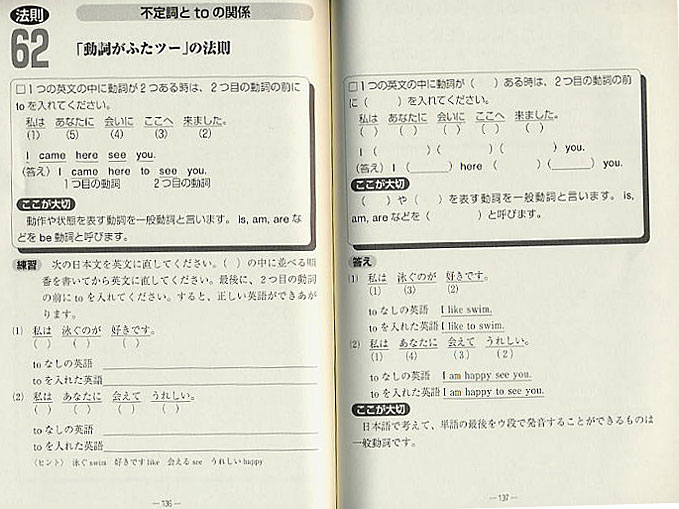 法則
62
不定詞と to の関係
「動詞がふたツー」の法則
□1つの英文の中に動詞が2つある時は、2つ目の動詞の前に
to を入れてください。
私は あなたに 会いに ここへ 来ました。
(1) (5) (4) (3) (2)
I came here see you.
(答え) I came here to see you.
1つ目の動詞 2つ目の動詞
ここが大切
動作や状態を表す動詞を一般動詞と言います。is, am, are な
どを be 動詞と呼びます。
練習 次の日本文を英文に直してください。( ) の中に並べる順
番を書いてから英文に直してください。最後に、2つ目の動詞
の前に to を入れてください。すると、正しい英語ができあが
ります。
(1) 私は 泳ぐのが 好きです。
( ) ( ) ( )
to なしの英語
to を入れた英語
(2) 私は あなたに 会えて うれしい。
( ) ( ) ( ) ( )
to なしの英語
to を入れた英語
(ヒント) 泳ぐ swim 好きです like 会える see うれしい happy
— 136 —
□1つの英文の中に動詞が ( ) ある時は、2つ目の動詞の前
に ( ) を入れてください。
私は あなたに 会いに ここへ 来ました。
( ) ( ) ( ) ( ) ( )
I ( ) ( ) ( ) you.
(答え) I ( ) here ( ) ( ) you.
ここが大切
( ) や ( ) を表す動詞を一般動詞と言います。is,
am, are などを ( ) と呼びます。
答え
(1) 私は 泳ぐのが 好きです。
(1) (3) (2)
to なしの英語 I like swim.
to を入れた英語 I like to swim.
(2) 私は あなたに 会えて うれしい。
(1) (4) (3) (2)
to なしの英語 I am happy see you.
to を入れた英語 I am happy to see you.
ここが大切
日本語で考えて、単語の最後をウ段で発音することができるものは
一般動詞です。
— 137 —